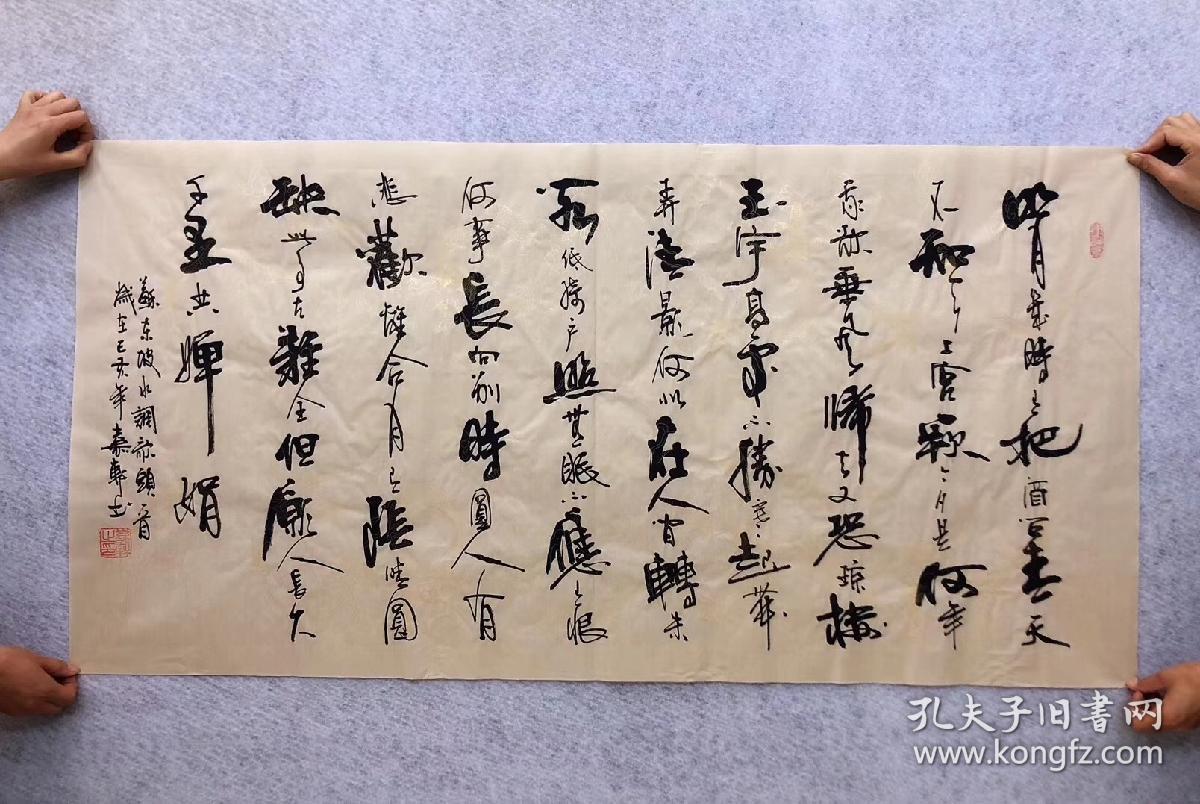 明月幾時有把酒問青天
不知天上宮闕今夕是何年
我欲乘風歸去又恐瓊樓
玉宇高處不勝寒起舞
弄清影何似在人間轉朱
閣低綺戶照無眠不應有恨
何事長向別時圓人有
悲歡離合月有陰晴圓
缺此事古難全但願人長久
千里共嬋娟
蘇東坡水調歌頭一首
歲在己亥年嘉軒書
孔夫子旧書网
www.kongfz.com